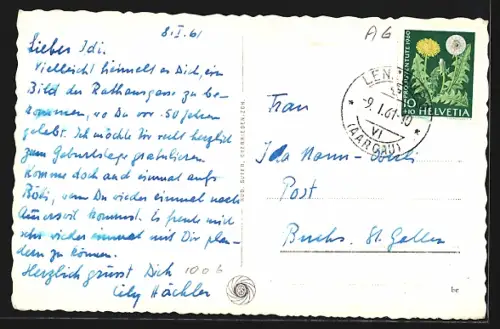 8.I.61
Lieber Idi.
Vielleicht heimelt es Dich, ein
Bild der Rathausgasse zu be-
kommen, wo Du vor 50 Jahren
gelebt. Ich möchte Dir recht herzlich
zum Geburtstage gratulieren.
Komme doch auch einmal aufs
wenn Du wieder einmal nach
kommst. Es freute mich
sehr wieder einmal mit Dir plau-
dern zu können.
Herzlich grüsst Dich 1006
Cily Hächler
A6
PRO JUVENTUTE 1960
10+10 HELVETIA
LEN
9.I.61-10
VI
(AARGAU)
Frau
Ida
Post
Buchs St. Gallen
be